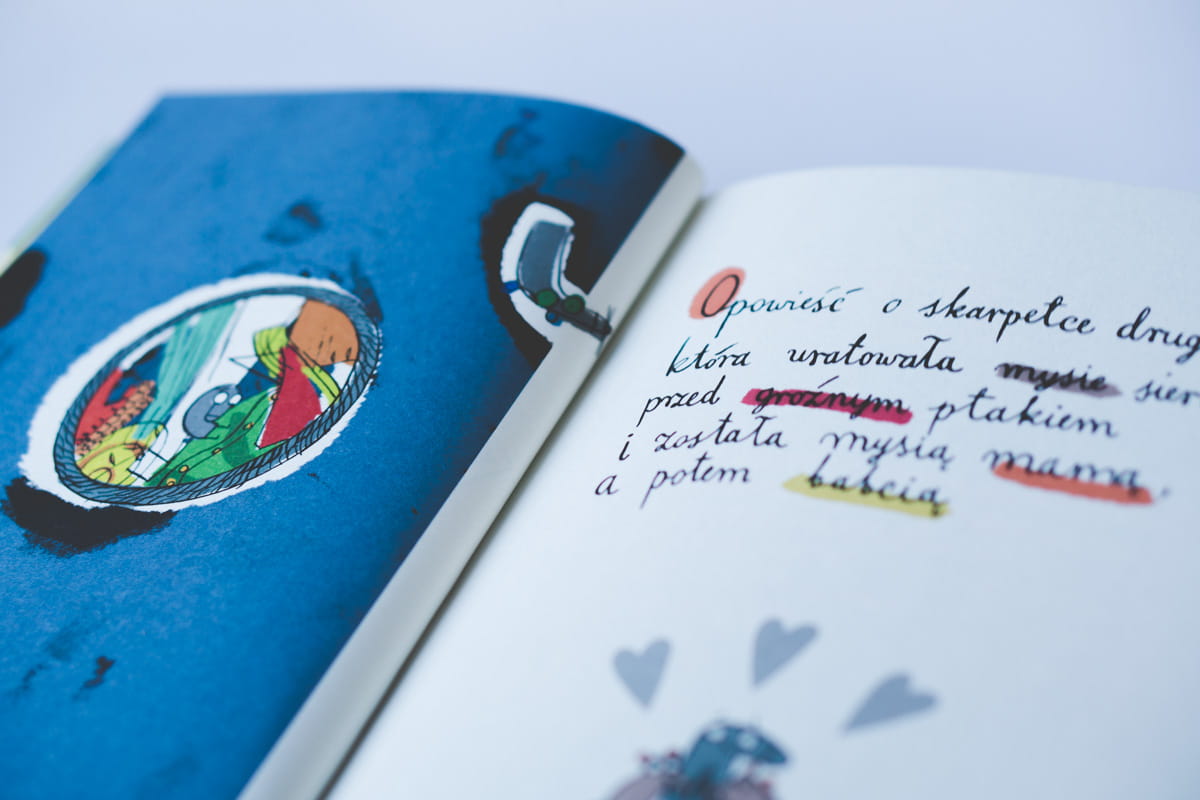 Opowieść o skarpetce drug
która uratowała mysie sier
przed groźnym ptakiem
i została mysią mamą,
a potem babcią